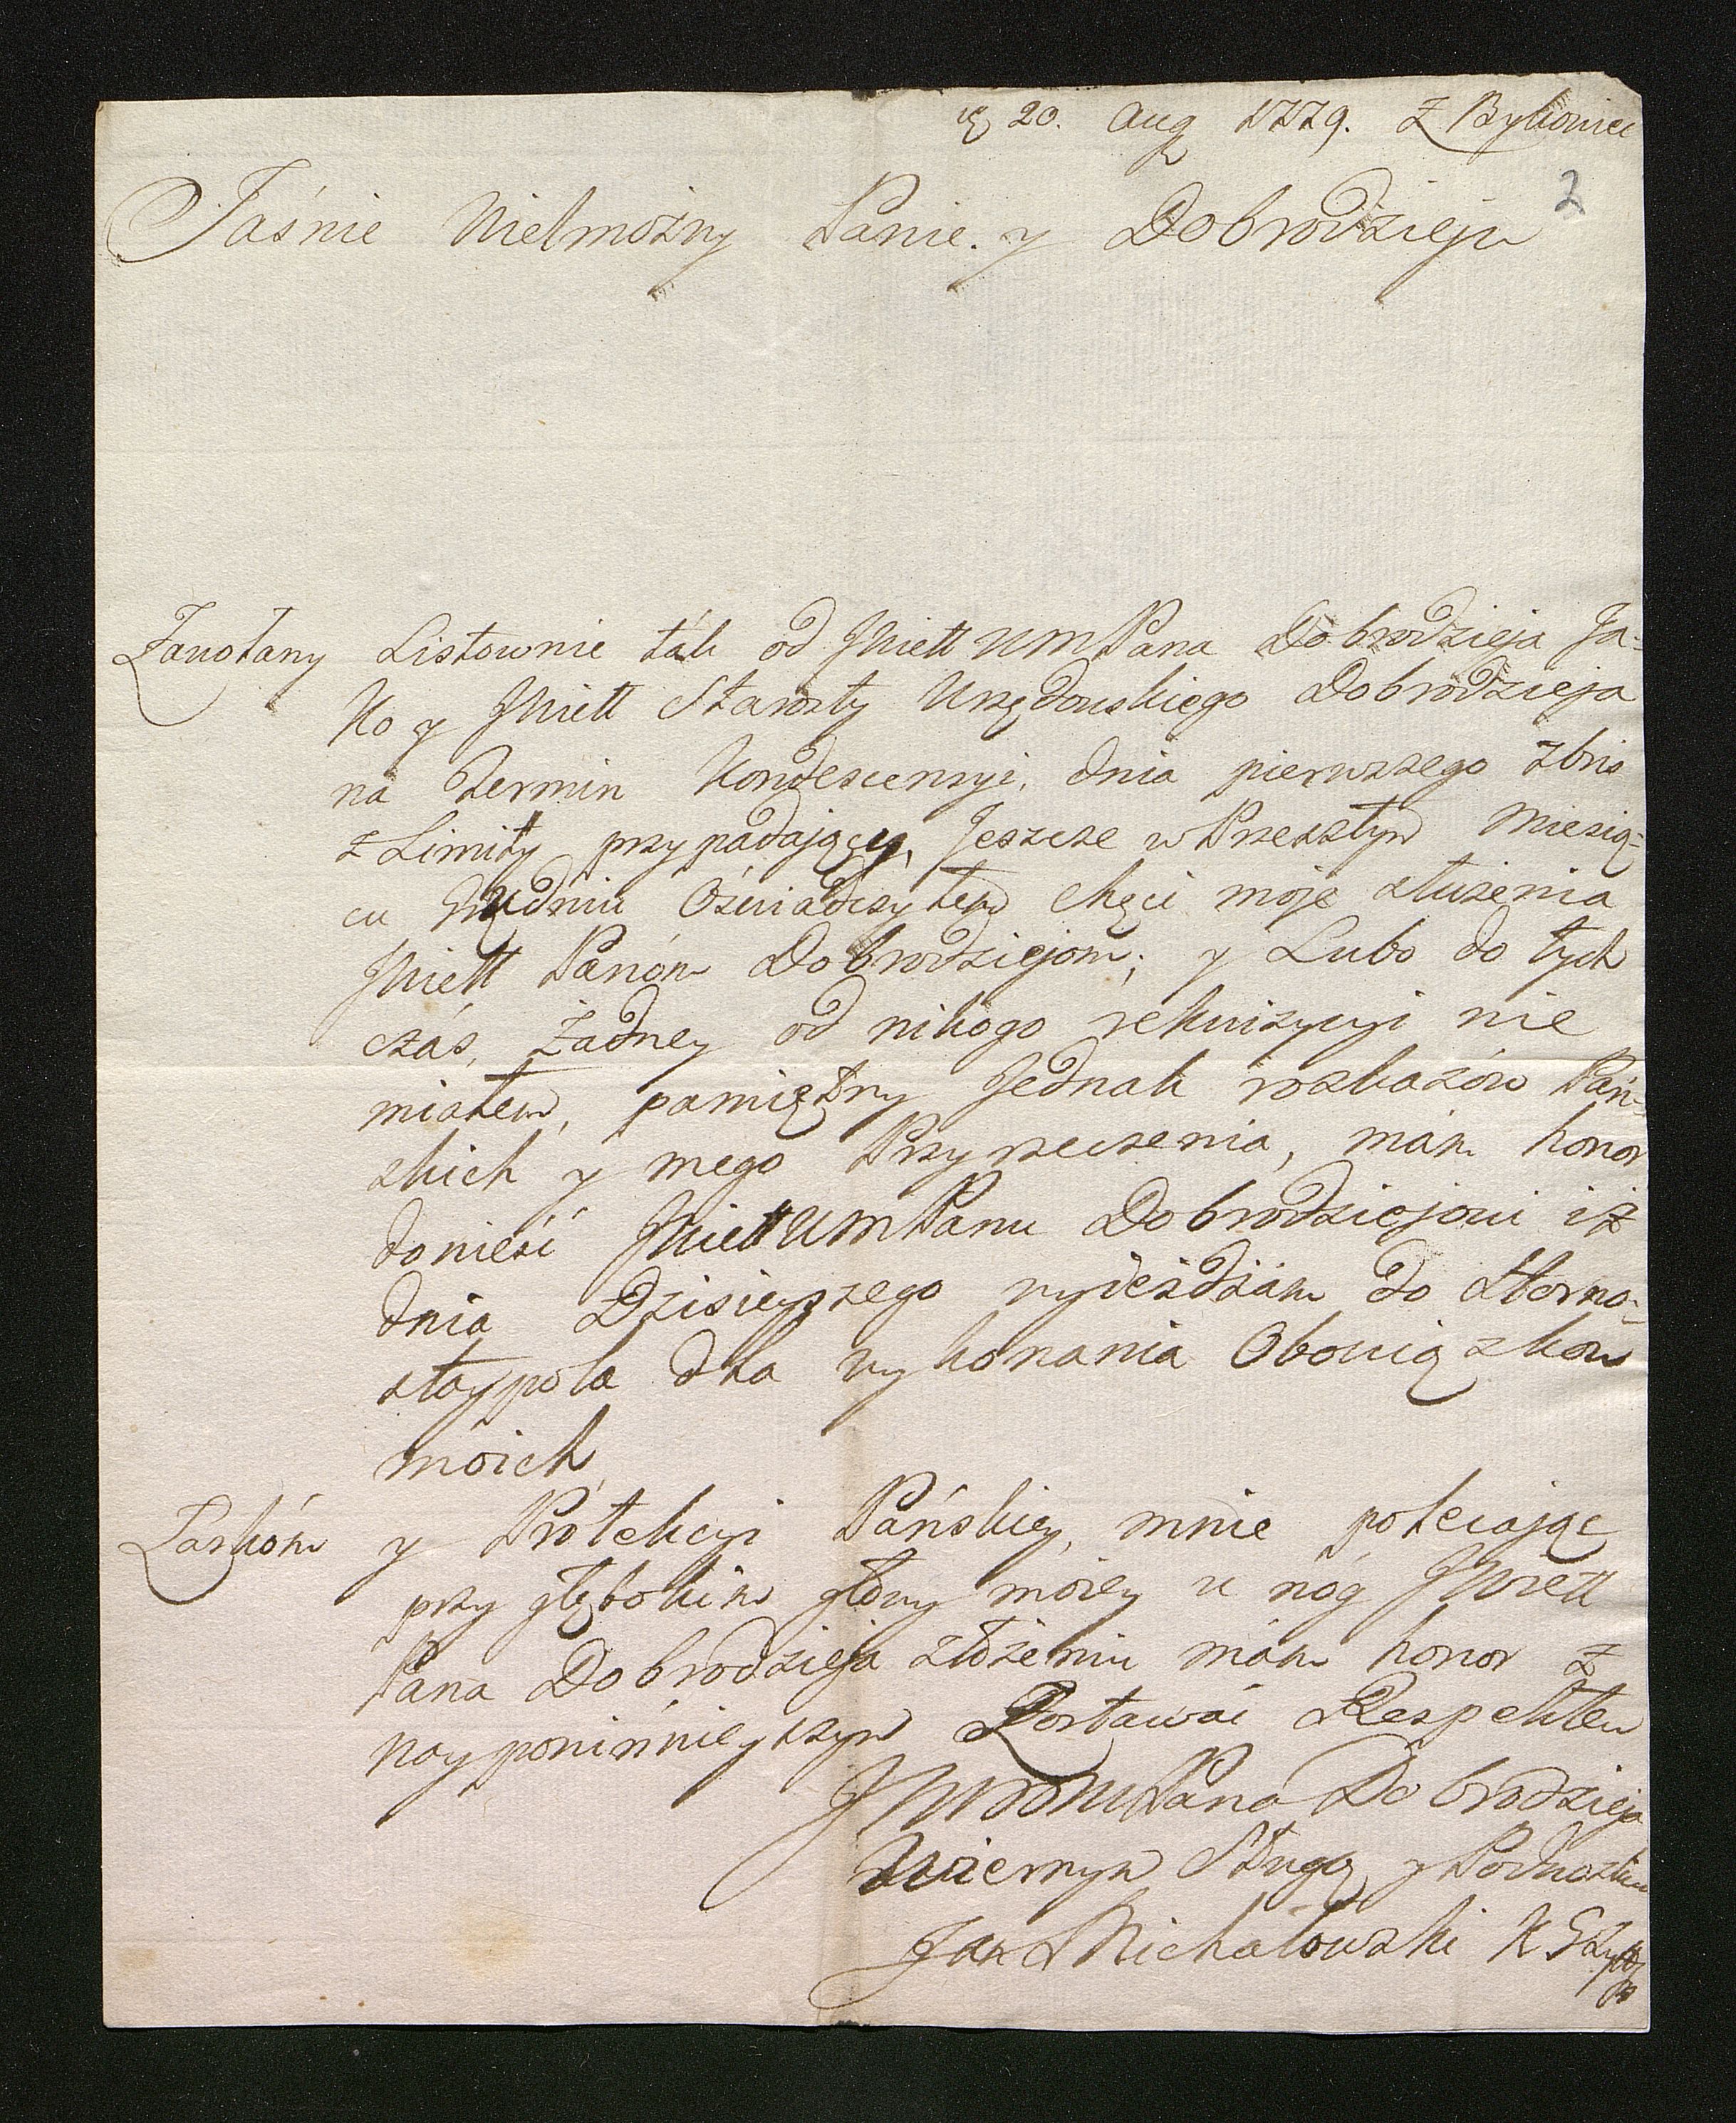 20. Aug 1779. z Bykoniec
2
Jaśnie Wielmożny Panie y Dobrodzieju
Zawołany Listownie ták od JWiell WMPana Dobrodzieja Ja-
ko y JWiell Starosty Urzędowskiego Dobrodzieja
na Termin Kondescensyi, dnia pierwszego 7bris
z Limity przypadającey, Jeszcze w Przeszłym Miesią-
cu Grudniu Oświadczyłem chęci moje służenia
JWiell Panóm Dobrodziejom; y Lubo do tych
czás, żadney od nikogo rekwizycyi nie
miałem, pamiętny Jednak rozkazów Pań-
skich y mego Przyrzeczenia, mám honor
donieść JWiell WMPanu Dobrodziejowi iż
dnia Dzisieyszego wyieżdżám do Horno-
staypola dla wykonania Obowiązkow
moich
Łaskóm y Protekcyi Pańskiey, mnie polecając
przy głębokim głowy moiey u nóg JWiell
Pana Dobrodzieja złożeniu mám honor z
nayponiżnieyszym Zostawać Respektem
JWWMPana Dobrodzieja
Wiernym Sługą y Podnoszkiem
Jan Michałowski K G